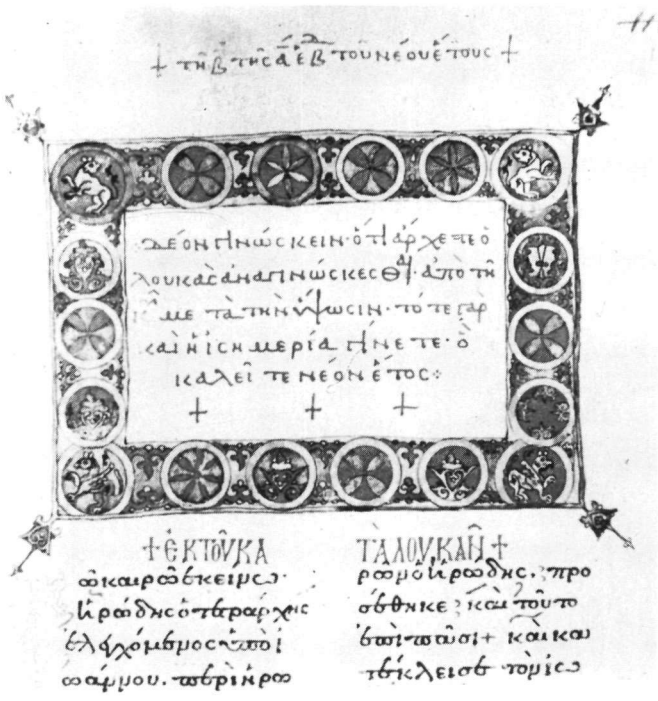 + τῆ β τῆς α ἑβ τοῦ νέου ἔτους +
Δέον γινώσκειν· ὅτι ἄρχετε ὁ
λουκας ἀναγινώσκεσθαι· ἀπο τῆ
κυ μετὰ τὴν ὕψωσιν· τότε γαρ
καὶ ἡ ἰσημερία γίνετε· ὁ
καλεῖτε νέον ἔτος
+ + +
+ ἐκ τοῦ κατὰ λουκὰν +
ῶ καιρῶ ἐκείνω·
Ηρώδης ὁ τετράρχης
ἐλεγχόμενος ὑπο ἰ
ωάννου. περὶ ηρω
ρω μὸ ηρώδης. προ
σέθηκε καὶ τοῦτο
ἐπὶ πᾶσι + καὶ κα
τέκλεισε τὸν ἰω